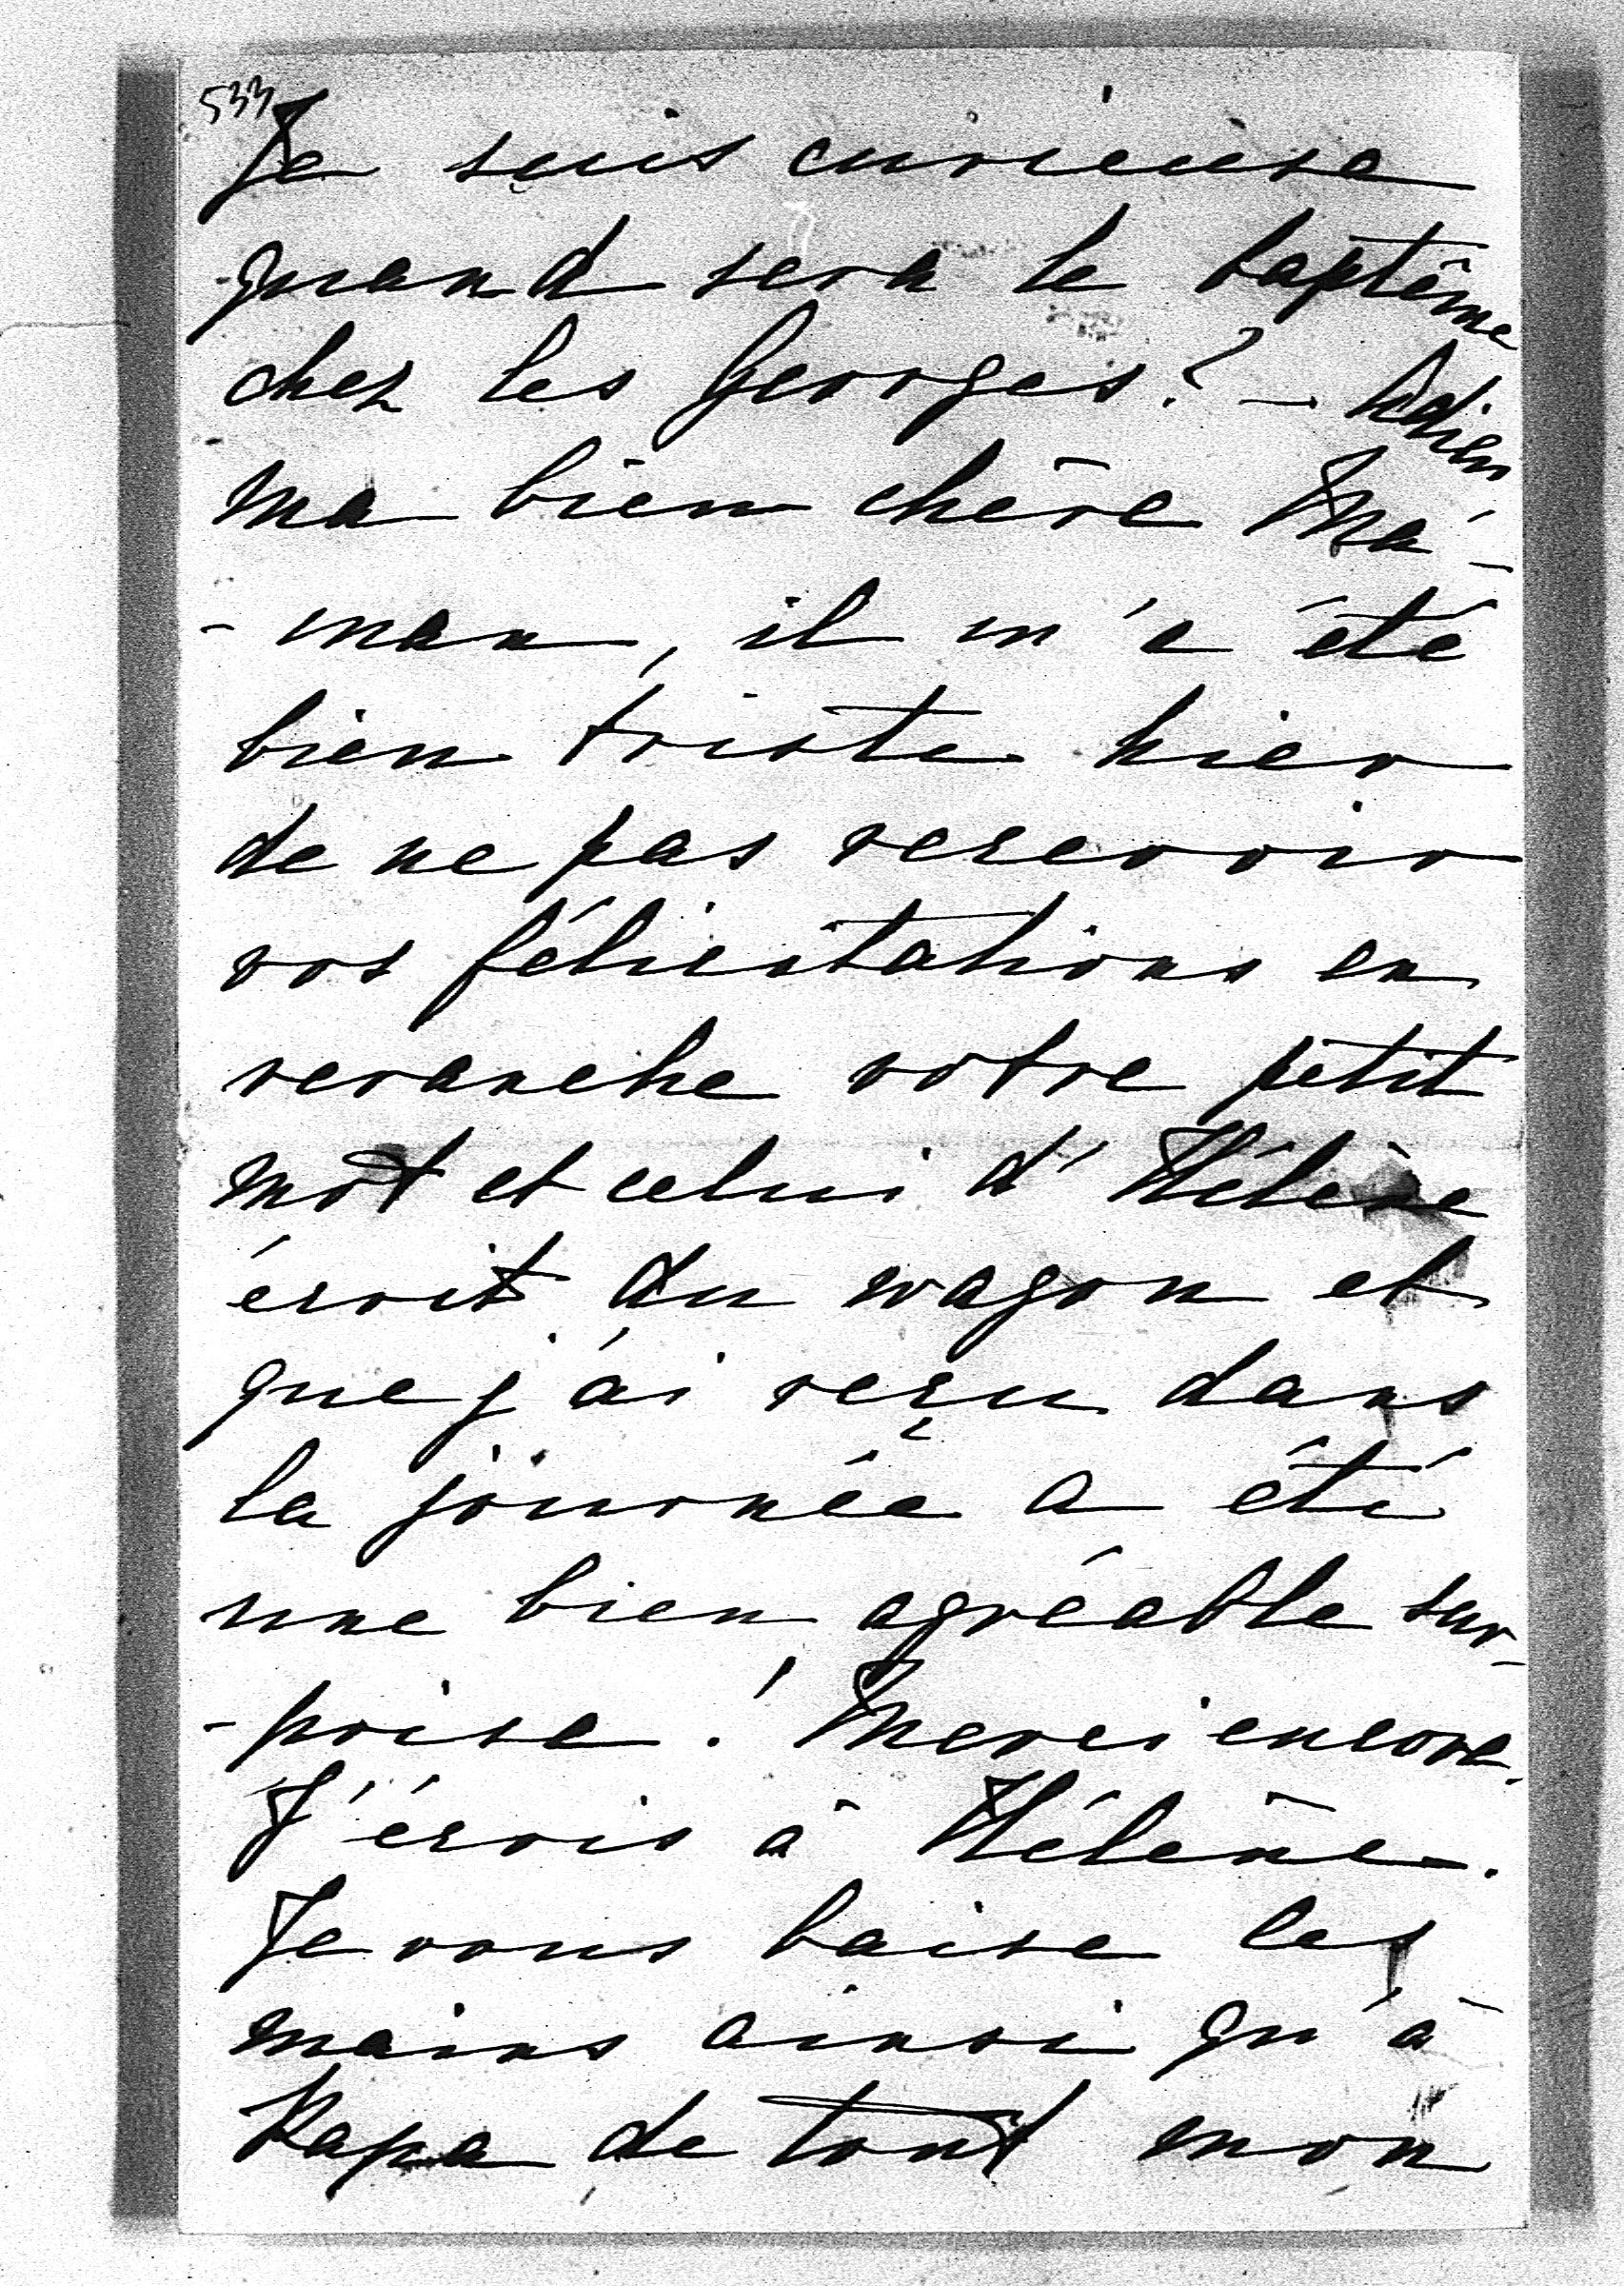 533
Je suis curieuse
quand sera le baptême
chez les Georges? – Adieu
ma bien chère Ma-
- man, il m'a été
bien triste hier
de ne pas recevoir
vos félicitations en
revanche votre petit
mot et celui d'Hélène
écrit du wagon et
que j'ai reçu dans
la journée a été
une bien agréable sur-
- prise! Merci encore.
J'écris à Hélène.
Je vous baise les
mains ainsi qu'à
Papa de tout mon